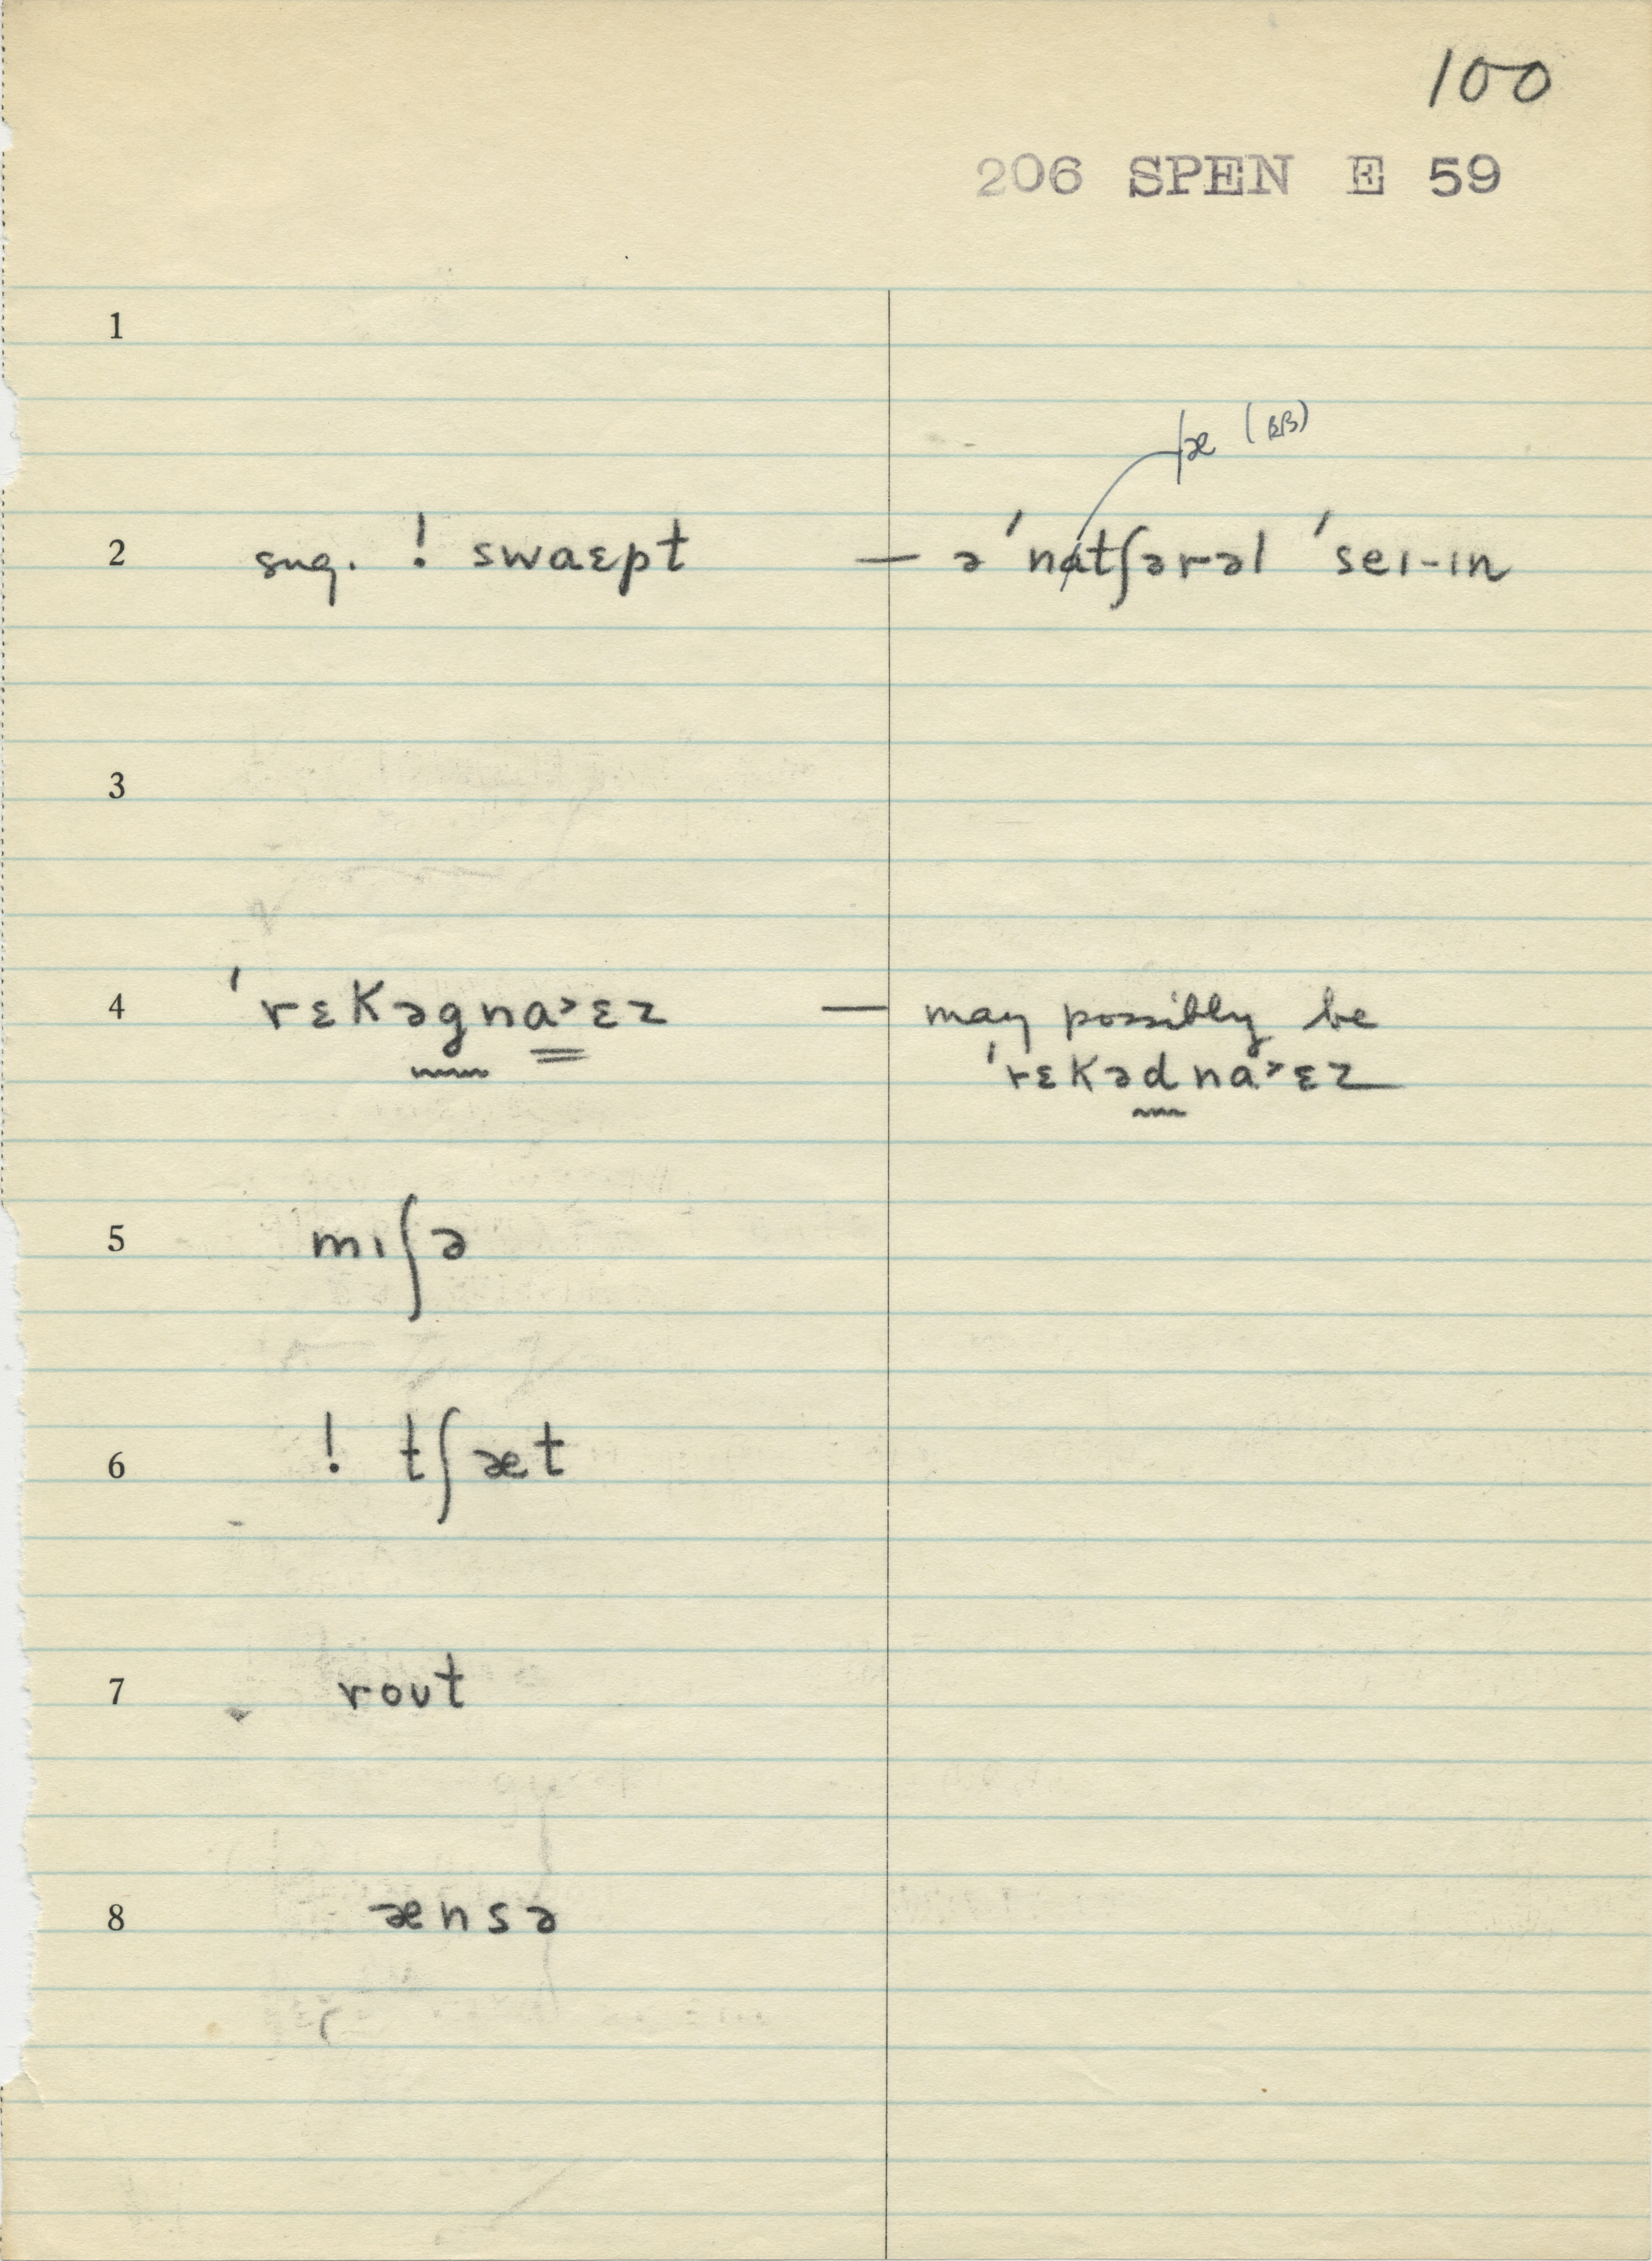 100
206 SPEN E 59
1
æ (BB)
2 sug. ! swaɛpt — ə 'natʃərəl 'seɪ-ɪn
3
4 'rɛkəgna˃ɛz — may possibly be
'rɛkədna˃ɛz
5 mɪʃə
6 ! tʃæt
7 rout
8 ænsə